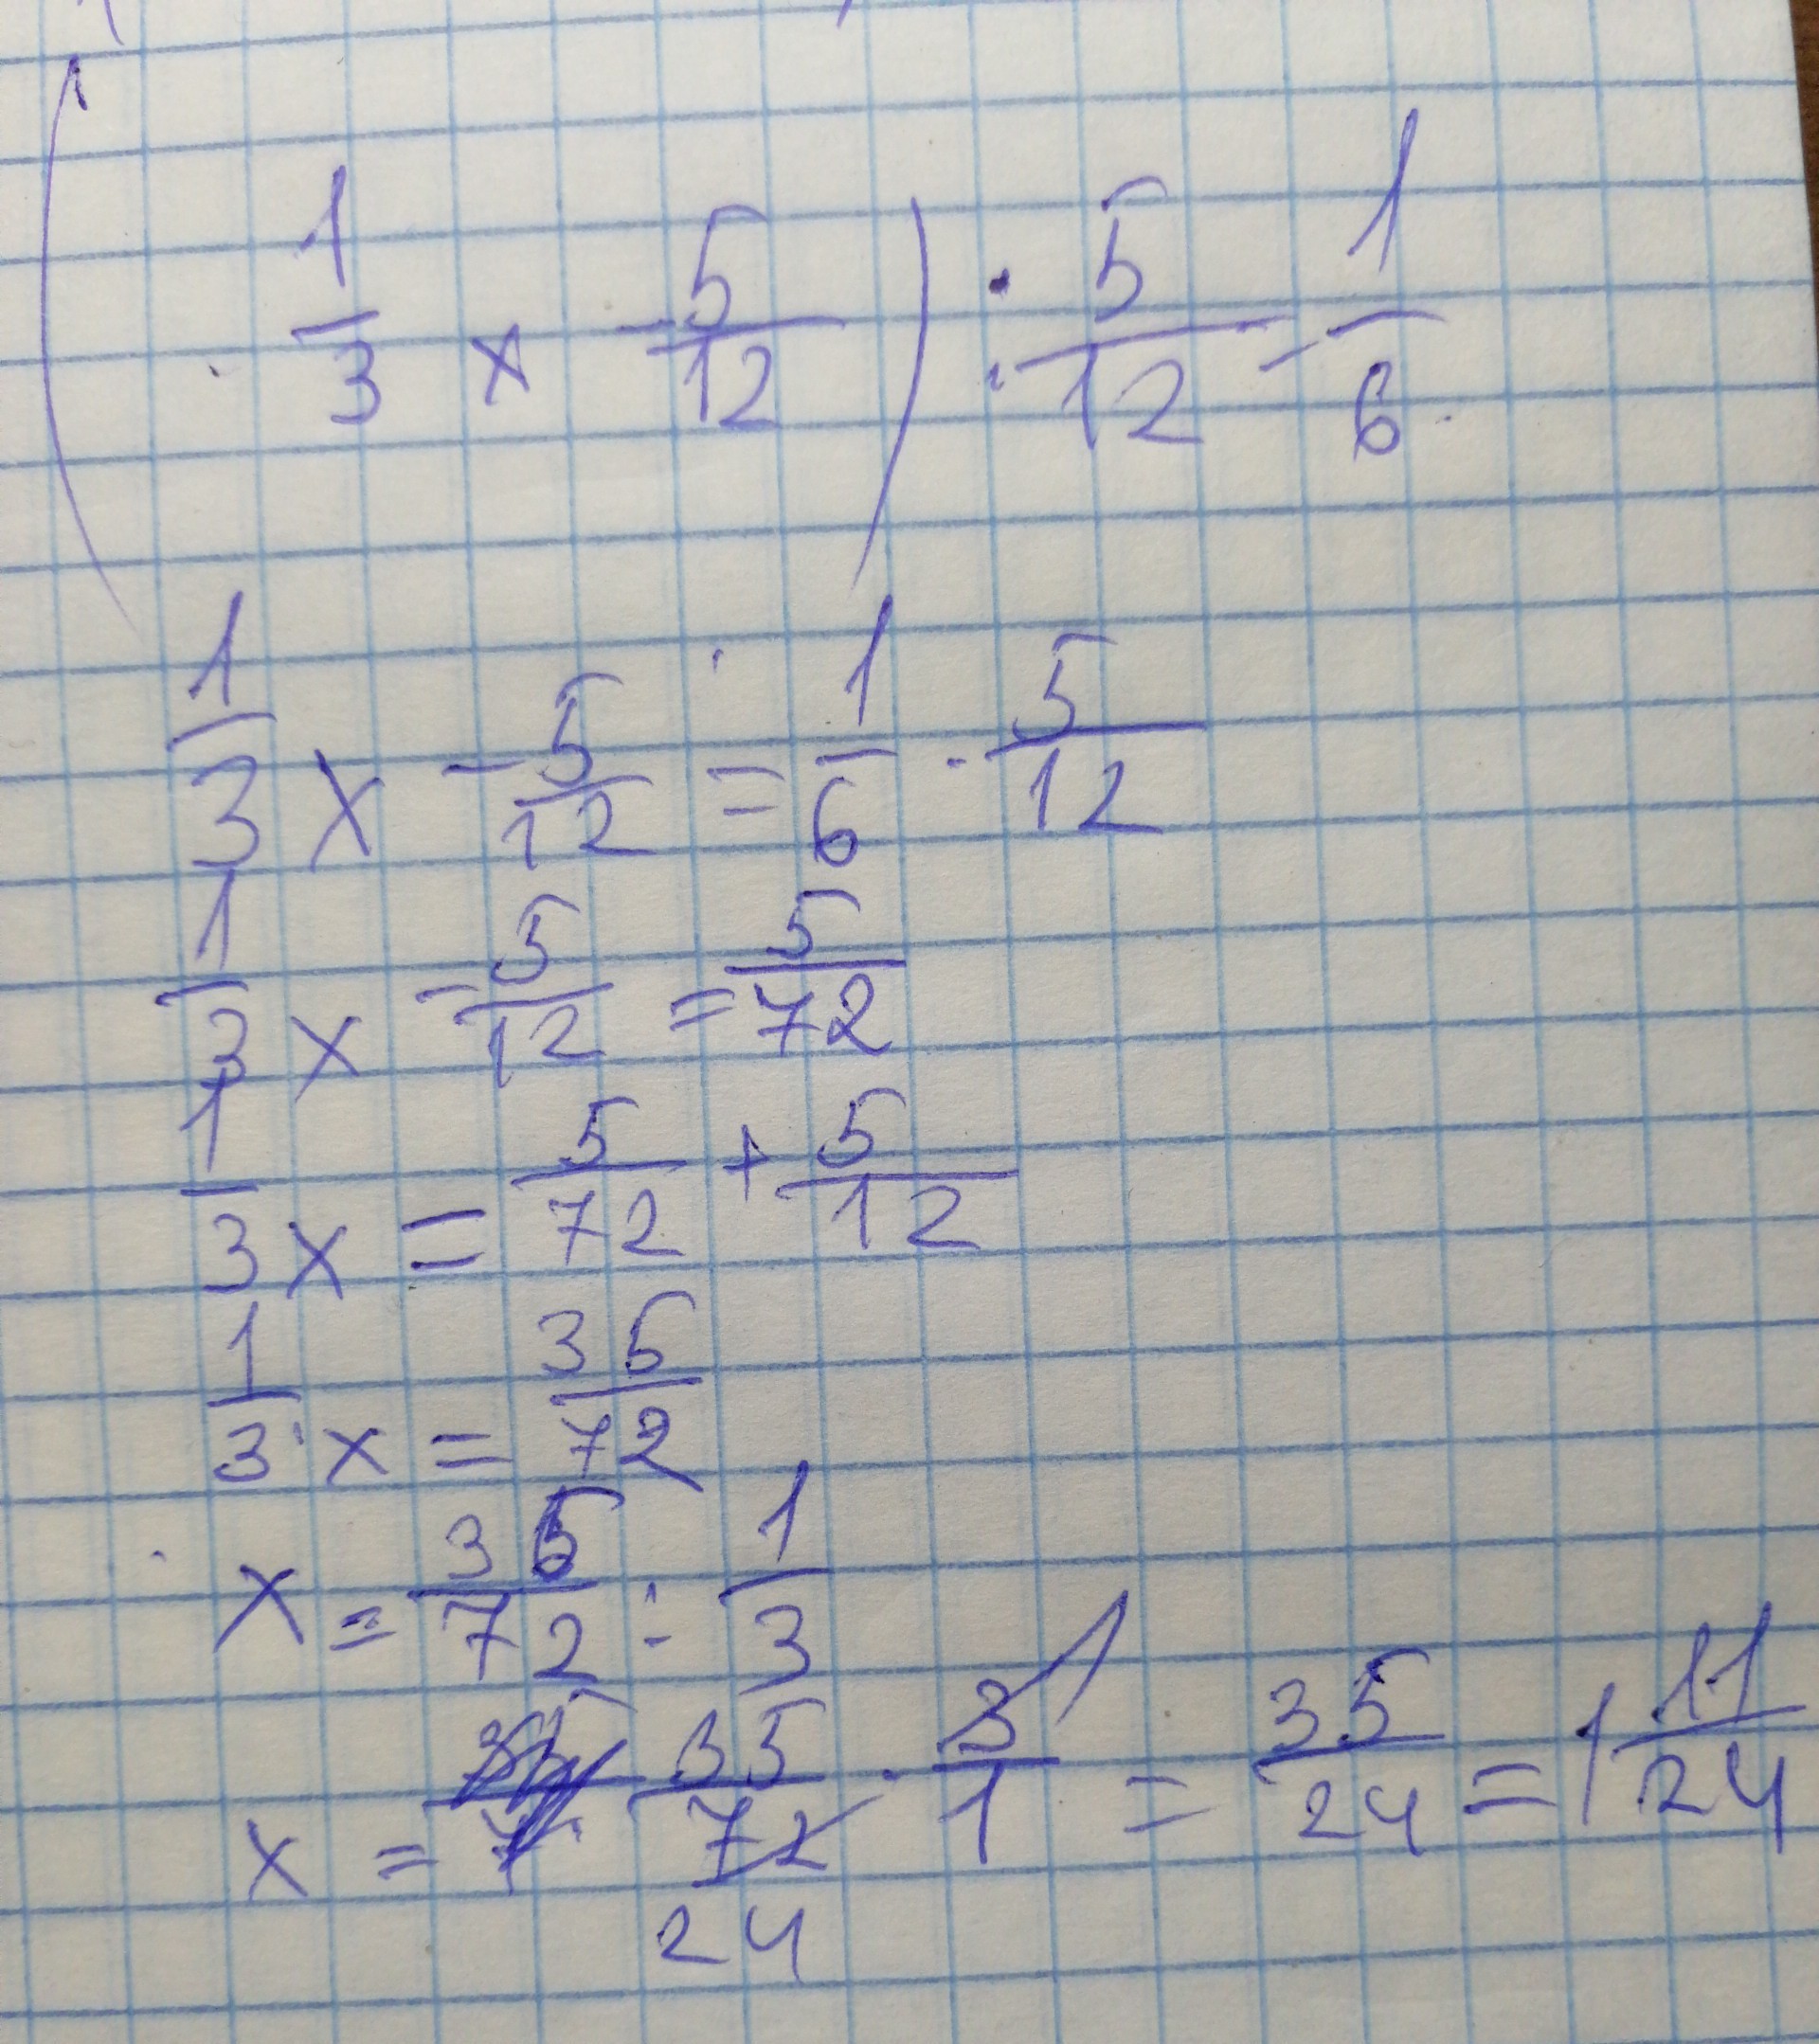 (1/3 x - 5/12) : 5/12 = 1/6
1/3 x - 5/12 = 1/6 · 5/12
1/3 x - 5/12 = 5/72
1/3 x = 5/72 + 5/12
1/3 x = 35/72
x = 35/72 : 1/3
x = 35/72 · 3/1 = 35/24 = 1 11/24
1
24